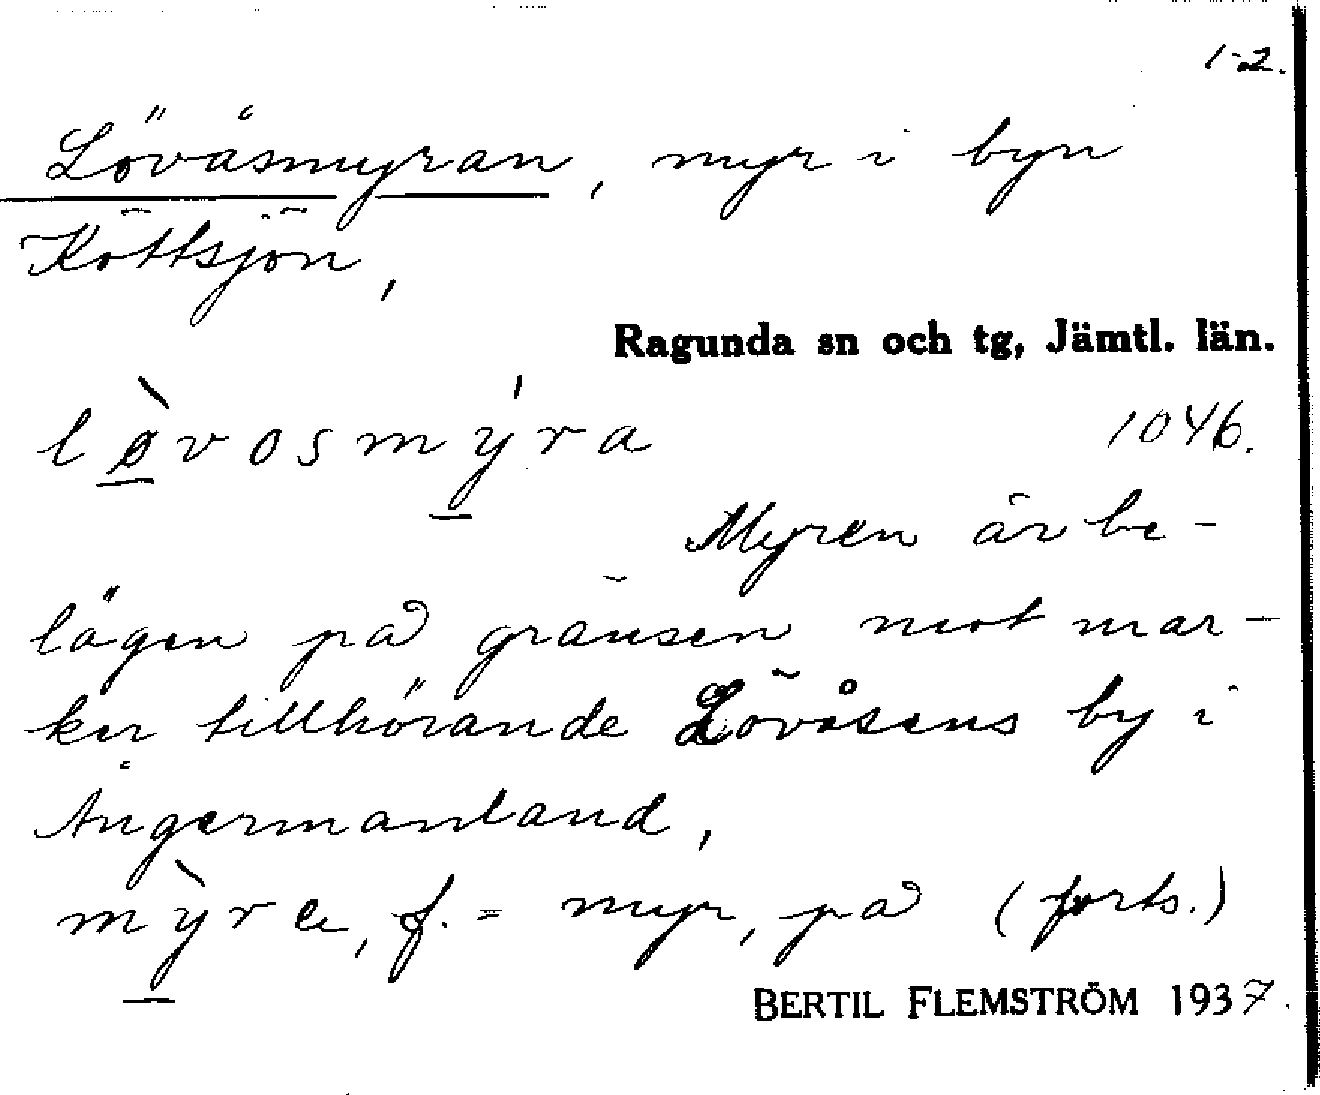 1-2.
Lövåsmyran, myr i byn
Köttsjön,
Ragunda sn och tg, Jämtl. län.
lø̱̀vosmý̱ra 1046.
Myren är be-
lägen på gränsen mot mar-
ker tillhörande Lövåsens by i
Ångermanland,
mỳ̱re, f. = myr, på (forts.)
BERTIL FLEMSTRÖM 1937.